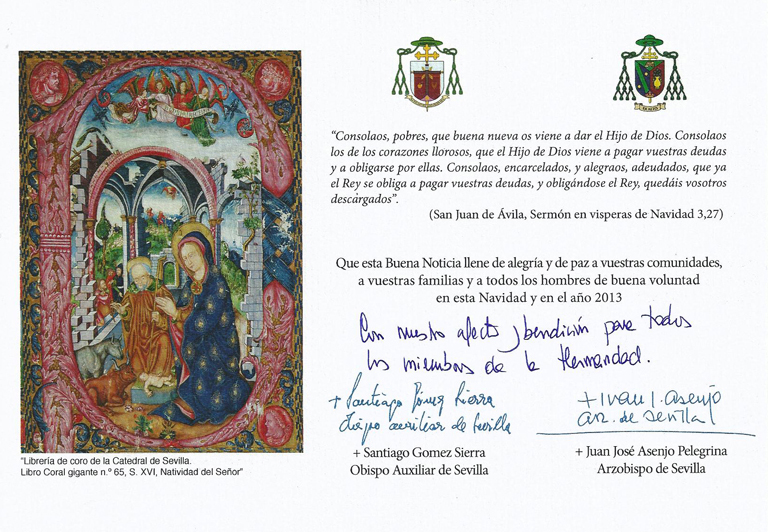 "Librería de coro de la Catedral de Sevilla.
Libro Coral gigante n.º 65, S. XVI, Natividad del Señor"
"Consolaos, pobres, que buena nueva os viene a dar el Hijo de Dios. Consolaos
los de los corazones llorosos, que el Hijo de Dios viene a pagar vuestras deudas
y a obligarse por ellas. Consolaos, encarcelados, y alegraos, adeudados, que ya
el Rey se obliga a pagar vuestras deudas, y obligándose el Rey, quedáis vosotros
descargados".
(San Juan de Ávila, Sermón en visperas de Navidad 3,27)
Que esta Buena Noticia llene de alegría y de paz a vuestras comunidades,
a vuestras familias y a todos los hombres de buena voluntad
en esta Navidad y en el año 2013
Con nuestro afecto y bendición para todos
los miembros de la Hermandad.
+ Santiago Gómez Sierra
Obispo auxiliar de Sevilla
+ Santiago Gomez Sierra
Obispo Auxiliar de Sevilla
+ Juan J. Asenjo
Arz. de Sevilla
+ Juan José Asenjo Pelegrina
Arzobispo de Sevilla